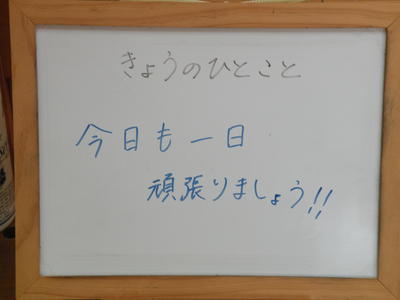 きょうのひとこと
今日も一日
頑張りましょう!!